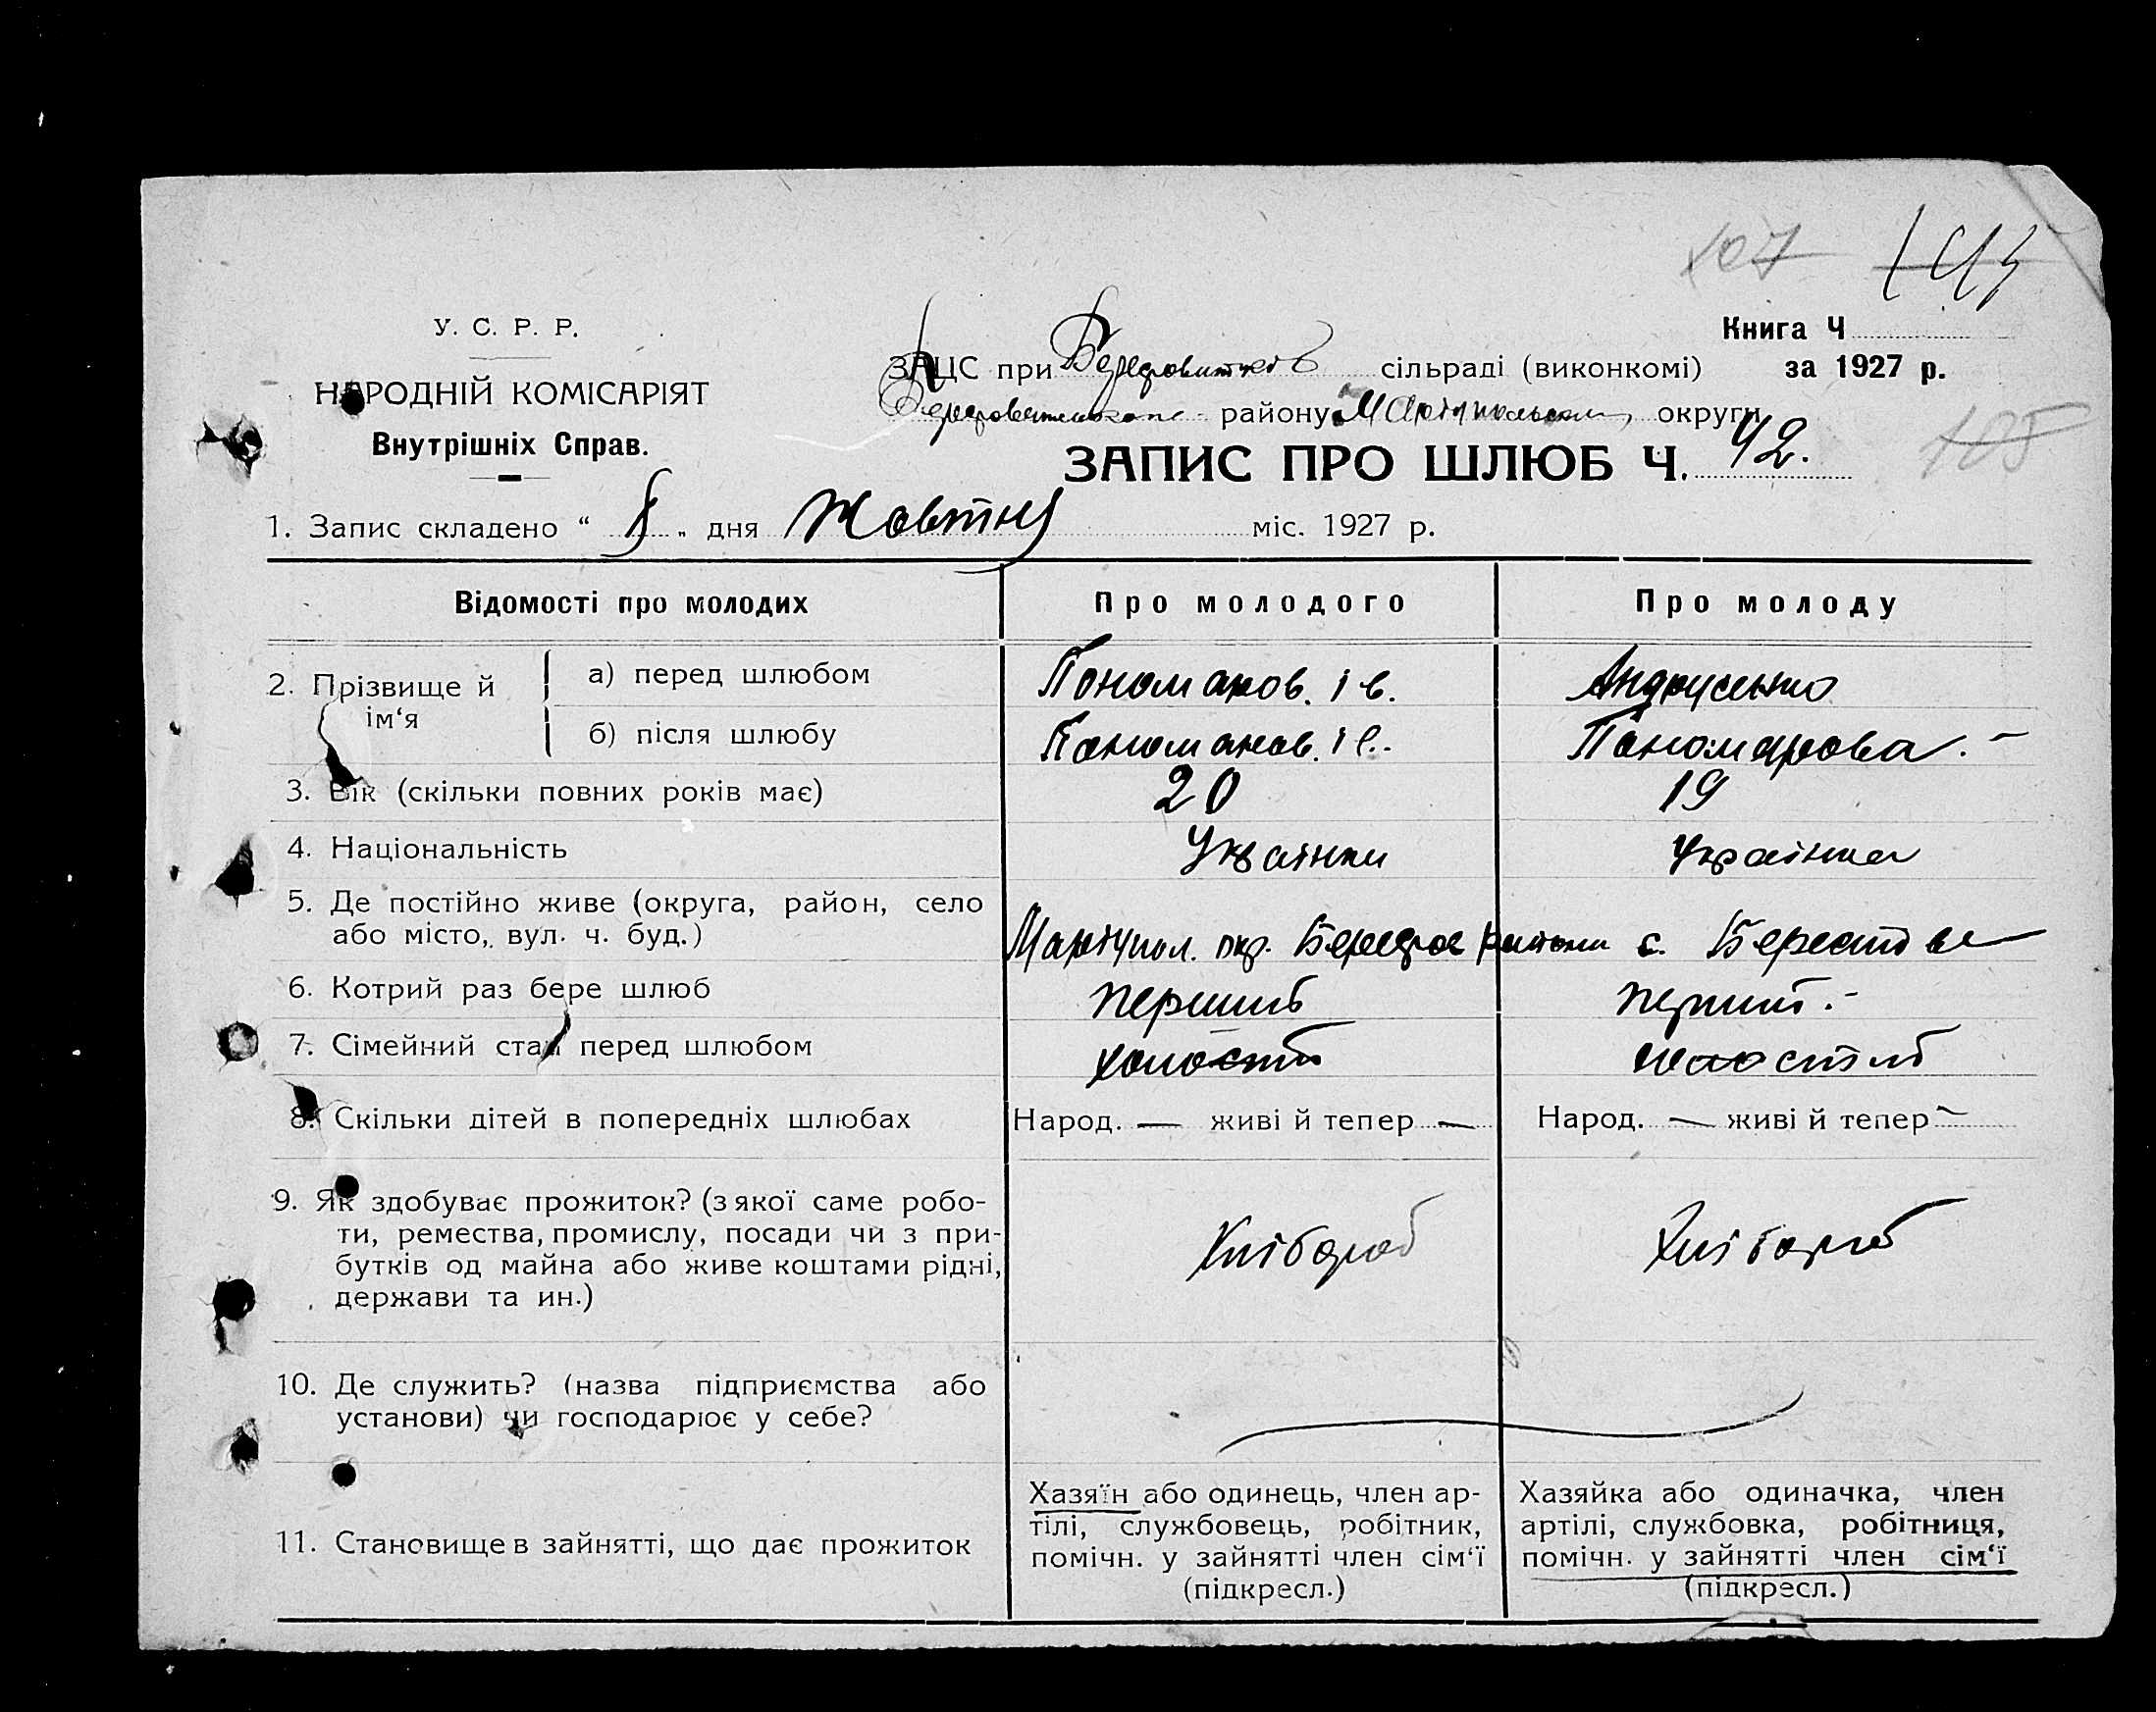 107 145
У. С. Р. Р.
Книга Ч
ЗАЦС при сільраді (виконкомі) за 1927 р.
НАРОДНІЙ КОМІСАРІЯТ
району округи
Внутрішніх Справ.
105
ЗАПИС ПРО ШЛЮБ Ч. 42.
1. Запис складено “ „ дня Жовтня міс. 1927 р.
Відомості про молодих Про молодого Про молоду
2. Прізвище й ім‘я
а) перед шлюбом Пономаров. Ів. Андрусенко
б) після шлюбу Пономаров. Ів. Пономарова. –
3. Вік (скільки повних років має) 20 19
4. Національність Українка
5. Де постійно живе (округа, район, село
або місто, вул. ч. буд.) с. Берестове
6. Котрий раз бере шлюб перший перший. –
7. Сімейний стан перед шлюбом холостий
8. Скільки дітей в попередніх шлюбах Народ. — живі й тепер — Народ. — живі й тепер —
9. Як здобуває прожиток? (з якої саме робо-
ти, ремества, промислу, посади чи з при-
бутків од майна або живе коштами рідні,
держави та ин.)
Хлібороб Хлібороб
10. Де служить? (назва підприємства або
установи) чи господарює у себе?
11. Становище в зайнятті, що дає прожиток
Хазяїн або одинець, член ар-
тілі, службовець, робітник,
помічн. у зайнятті член сім‘ї
(підкресл.)
Хазяйка або одиначка, член
артілі, службовка, робітниця,
помічн. у зайнятті член сім‘ї
(підкресл.)